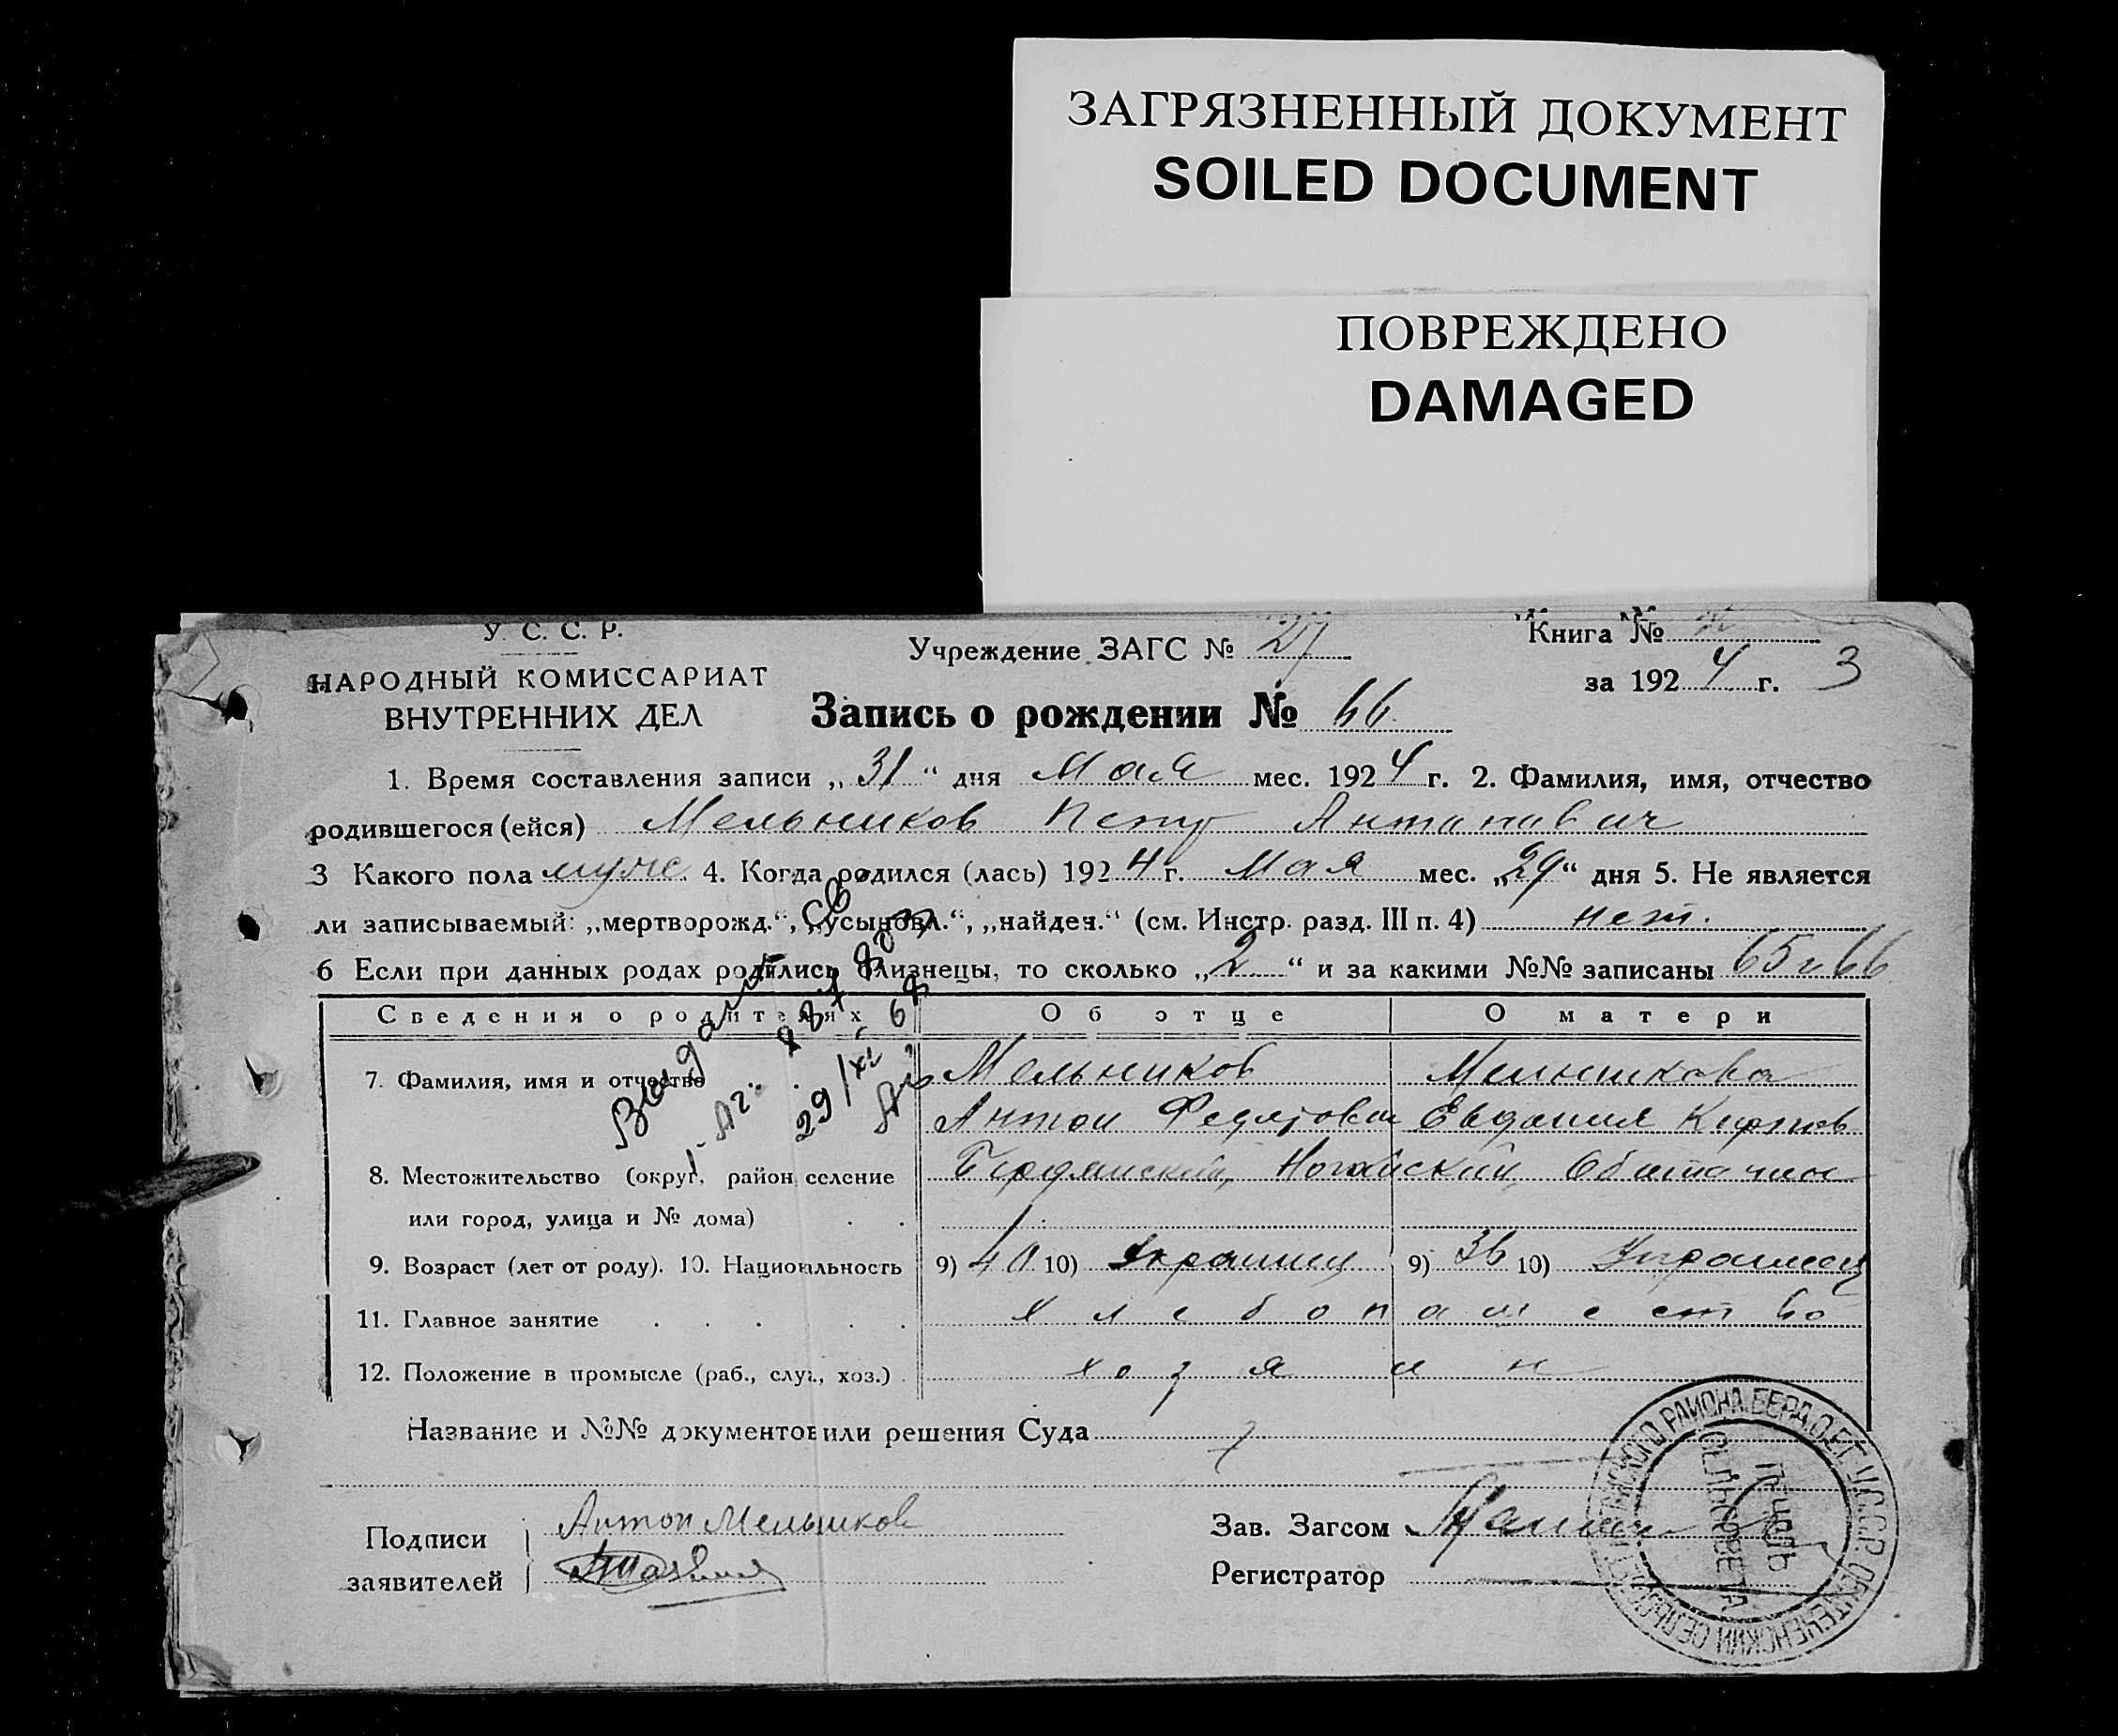 ЗАГРЯЗНЕННЫЙ ДОКУМЕНТ
SOILED DOCUMENT
ПОВРЕЖДЕНО
DAMAGED
У. С. С. Р.
НАРОДНЫЙ КОМИССАРИАТ
ВНУТРЕННИХ ДЕЛ
Учреждение ЗАГС № 27
Книга №
за 1924 г. 3
Запись о рождении № 66
1. Время составления записи „31“ дня Мая мес. 1924 г. 2. Фамилия, имя, отчество
родившегося (ейся) Мельников Петр Антонович
3 Какого пола муже. 4. Когда родился (лась) 1924 г. Мая мес. „29“ дня 5. Не является
ли записываемый: „мертворожд.“, „усыновл.“, „найден.“ (см. Инстр. разд. III п. 4) нет.
6 Если при данных родах родились близнецы, то сколько „2“ и за какими №№ записаны 65 и 66
Сведения о родителях Об отце О матери
7. Фамилия, имя и отчество Мельников Мельникова
Антон Евдокия
8. Местожительство (округ, район, селение Бердянский, Ногайский,
или город, улица и № дома)
9. Возраст (лет от роду). 10. Национальность 9) 40 10) Украинец 9) 36 10) Украинец
11. Главное занятие хлебопашество
12. Положение в промысле (раб., служ., хоз.) хозяин
Выдано
29/XI
Название и №№ документов или решения Суда
Подписи заявителей
Антон Мельников
Зав. Загсом
Регистратор
ПЕЧАТЬ
СЕЛЬСОВЕТА